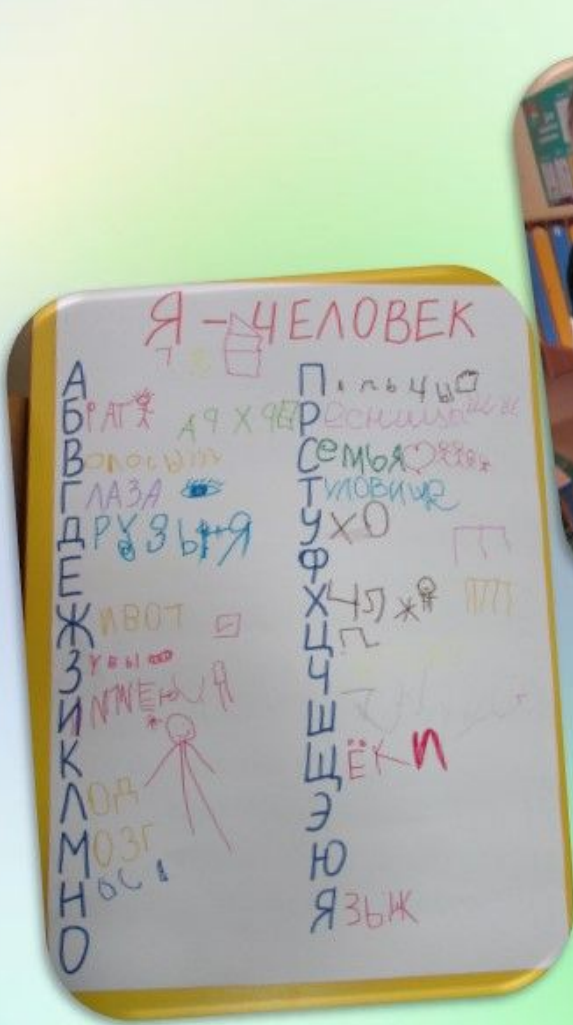 Я - ЧЕЛОВЕК
А
БРАТ
Волосы
ГЛАЗА
ДРУЗЬЯ
Е
ЖИВОТ
Зубы
И
К
ЛОД
МОЗГ
НОС
О
Пальцы
Ресница
Семья
Туловище
УХО
Ф
Х
Ц
Ч
Ш
ЩЁКИ
Э
Ю
ЯЗЫК